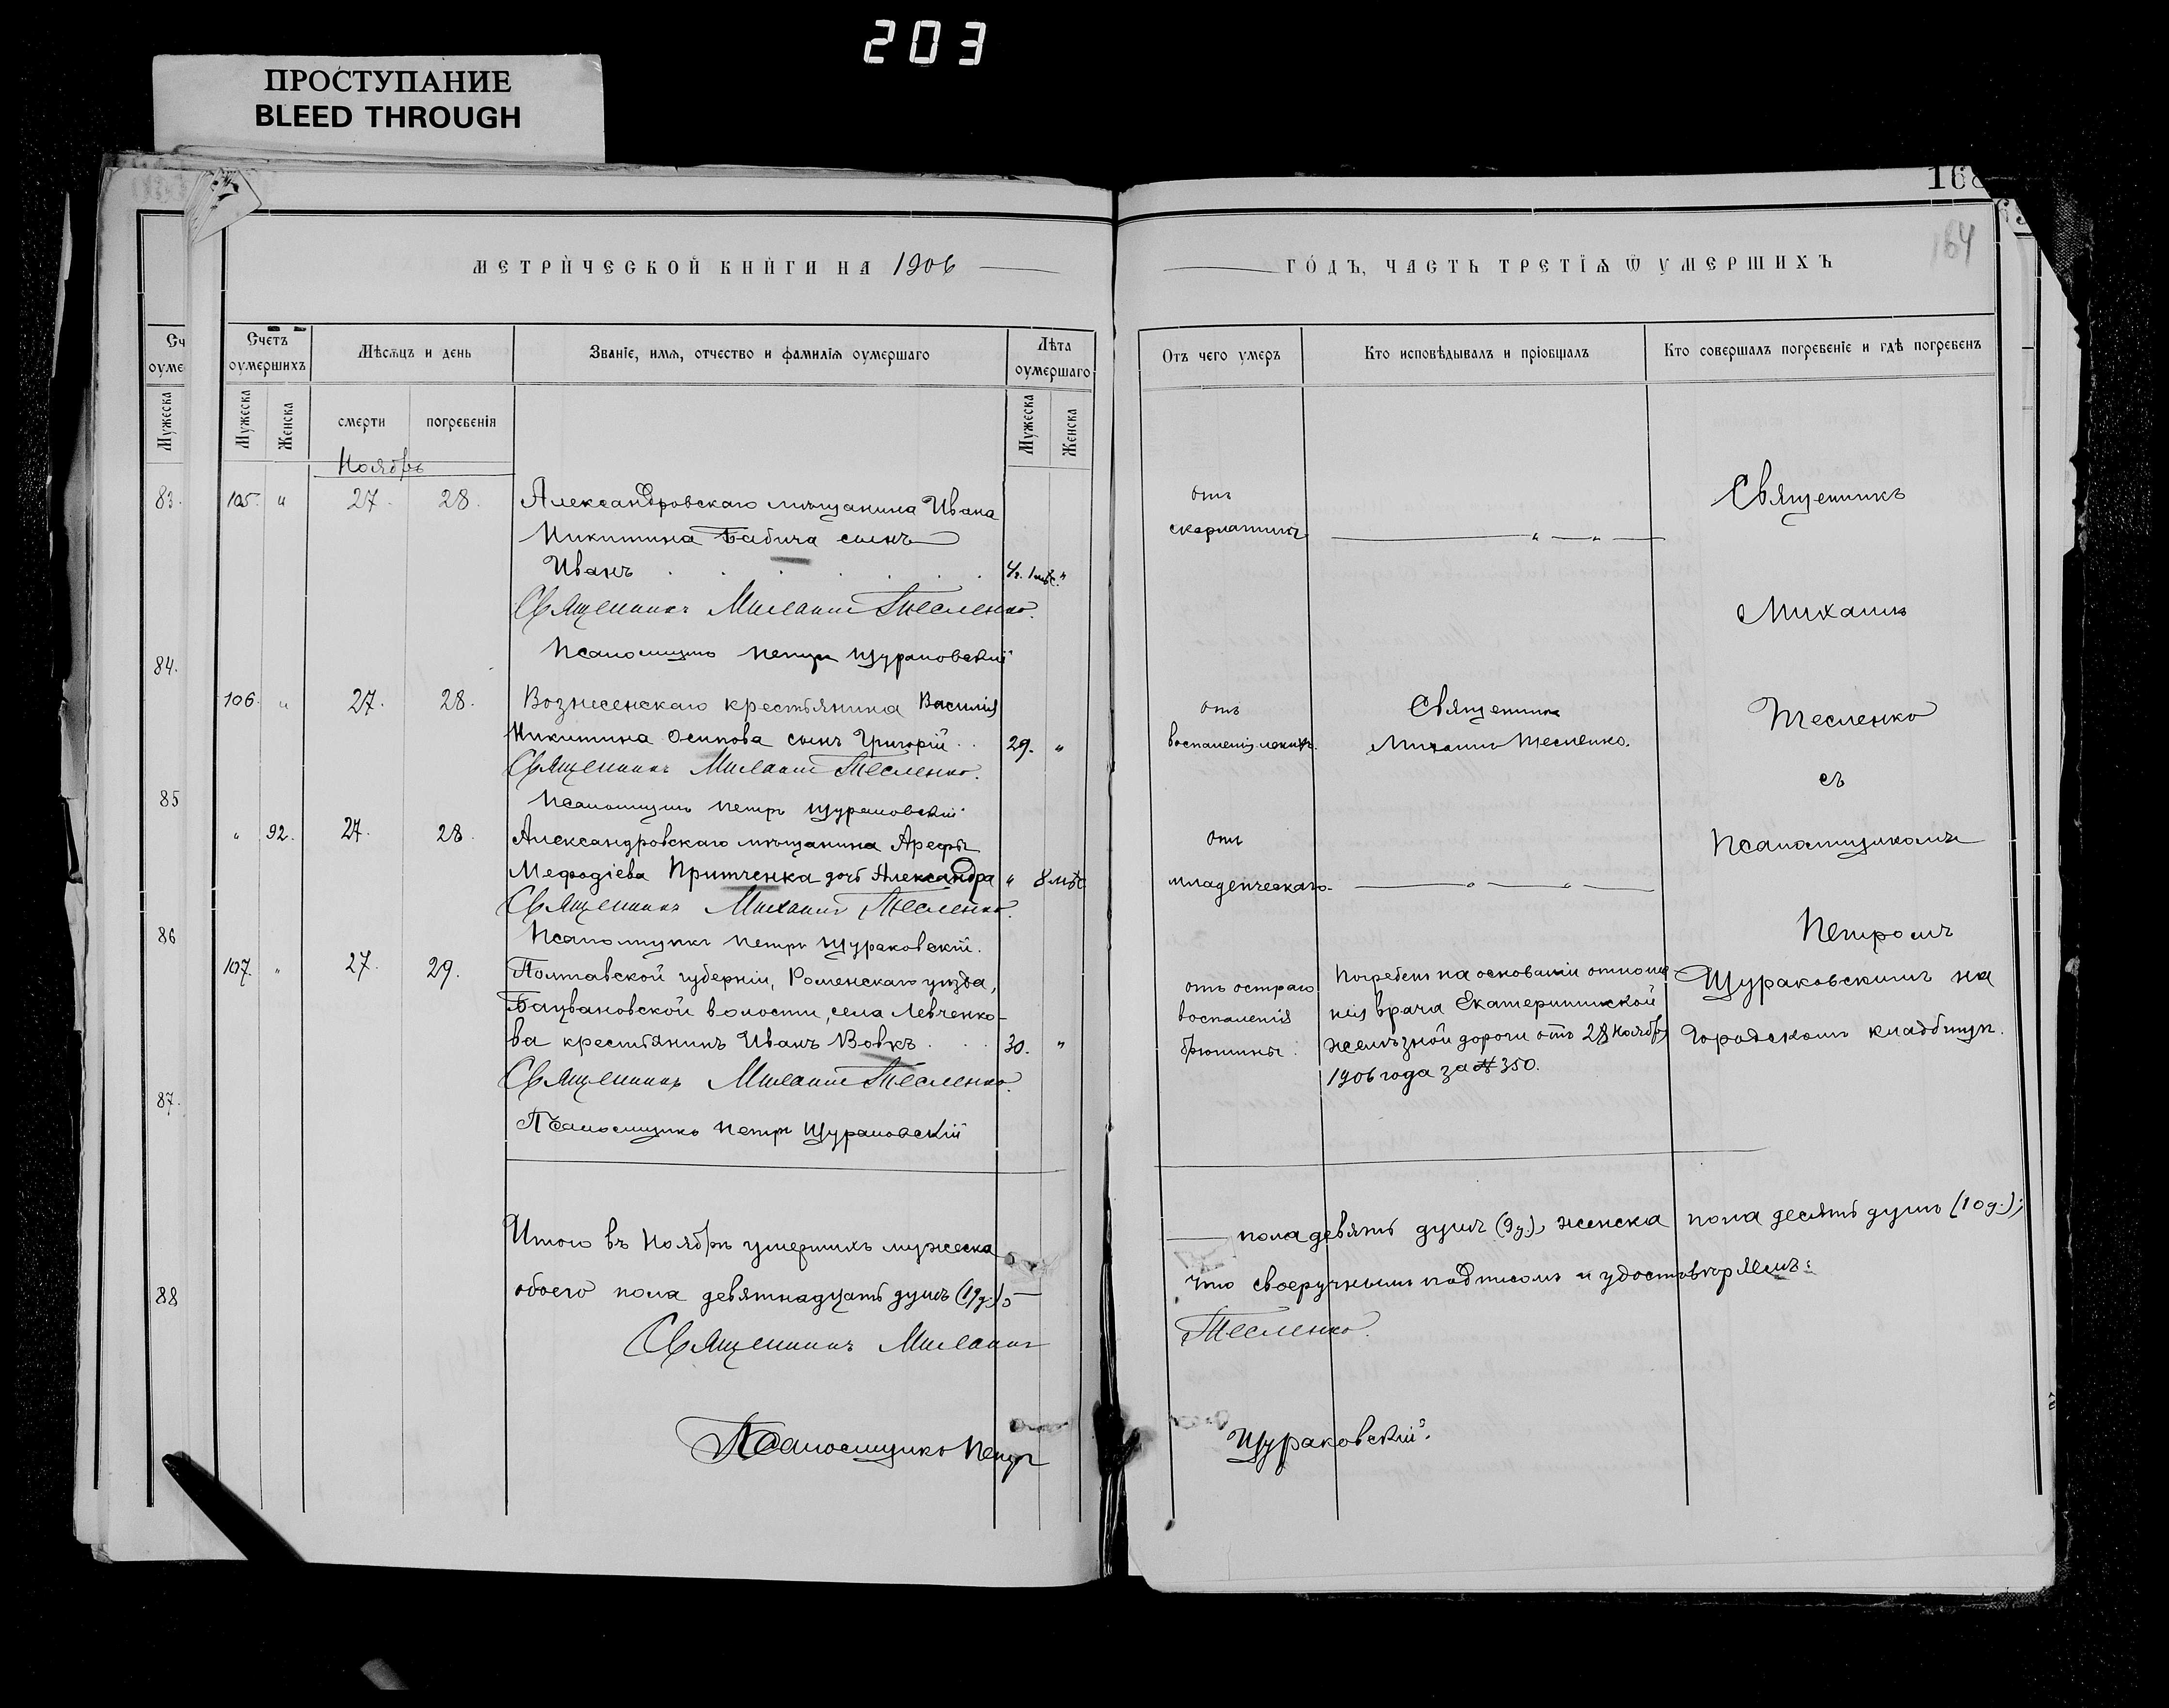 203
ПРОСТУПАНИЕ
BLEED THROUGH
168
164
МЕТРИЧЕСКОЙ КНИГИ НА 1906
ГОДЪ, ЧАСТЬ ТРЕТІЯ Ѿ УМЕРШИХЪ
Сч
оуме
Мужеска
83.
84.
85
86
87.
88
Счетъ оумершихъ
Мужеска
Женска
Мѣсяцъ и день
смерти
погребенія
Званіе, имя, отчество и фамилія оумершаго
Лѣта оумершаго
Мужеска
Женска
Отъ чего умеръ
Кто исповѣдывалъ и пріобщалъ
Кто совершалъ погребеніе и гдѣ погребенъ
Ноябрь
105. " 27. 28. Александровскаго мѣщанина Ивана
Никитина Бабича сынъ
Иванъ
отъ
скарлатины
Священникъ Михаилъ Тесленко.
Псаломщикъ Петръ Щураковскій
106. " 27. 28. Вознесенскаго крестьянина Василія
Никитина Осипова сынъ Григорій 29. "
отъ
воспаленія легкихъ.
Священникъ
Михаилъ Тесленко.
Священникъ Михаилъ Тесленко.
Псаломщикъ Петръ Щураковскій
" 92. 27. 28. Александровскаго мѣщанина Арефы
Мефодіева Притченка дочь Александра " 8 мѣс.
отъ
младенческаго
Священникъ Михаилъ Тесленко.
Псаломщикъ Петръ Щураковскій.
107. " 27. 29. Полтавской губерніи, Роменскаго уѣзда,
волости, села Левченко-
ва крестьянинъ Иванъ Вовкъ 30. "
отъ остраго
воспаленія
брюшины.
Погребенъ на основаніи отноше
нія врача Екатерининской
желѣзной дороги отъ 28 Ноября
1906 года за № 350.
Священникъ Михаилъ Тесленко.
Псаломщикъ Петръ Щураковскій
Священникъ
Михаилъ
Тесленко
съ
Псаломщикомъ
Петромъ
Щураковскимъ на
Городскомъ кладбищѣ.
Итого въ Ноябрѣ умершихъ мужеска пола девять душъ (9 д.), женска пола десять душъ (10 д.);
обоего пола девятнадцать душъ (19 д.), что своеручнымъ подписомъ и удостовѣряемъ:
Священникъ Михаилъ Тесленко.
Псаломщикъ Петръ Щураковскій.